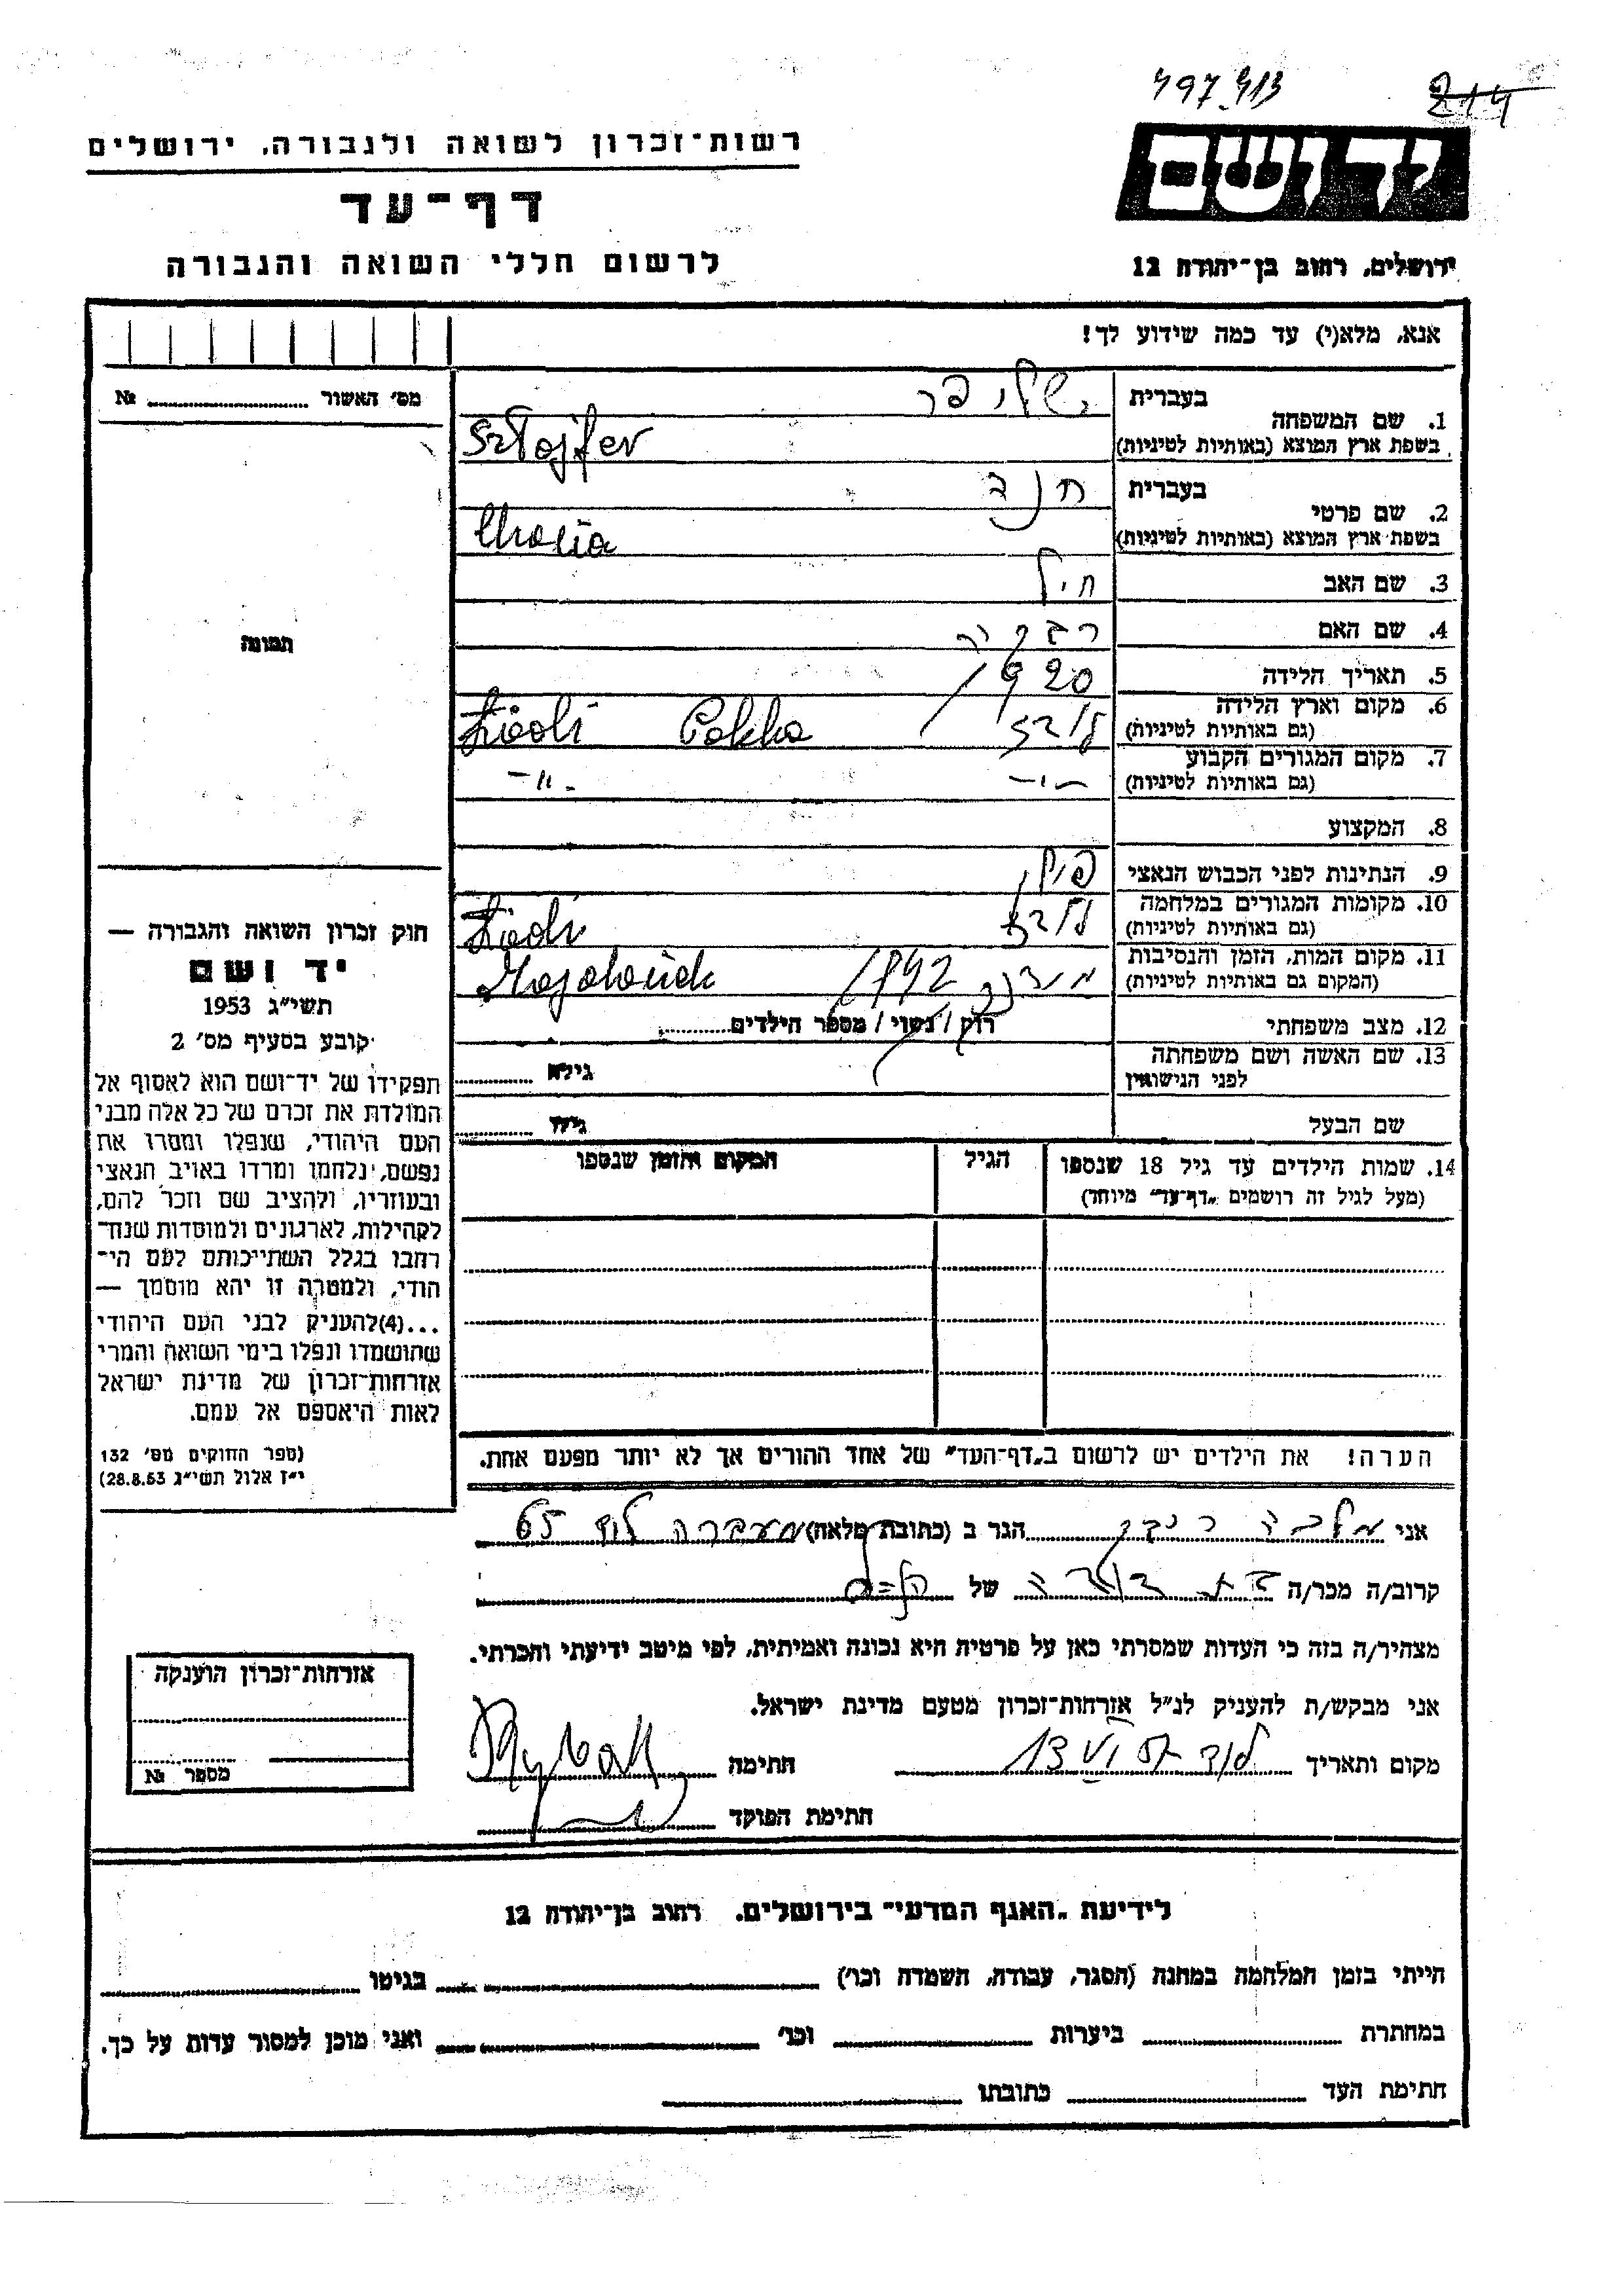 497.413 214
יד ושם
רשות־זכרון לשואה ולגבורה, ירושלים
דף־עד
לרשום חללי השואה והגבורה
ירושלים, רחוב בן־יהודה 12
אנא, מלא(י) עד כמה שידוע לך!
מס׳ האשור № ..........
1. שם המשפחה בעברית שלייפר
בשפת ארץ המוצא (באותיות לטיניות) Szlajfer
2. שם פרטי בעברית חנה
בשפת ארץ המוצא (באותיות לטיניות)
3. שם האב
4. שם האם רבקה
5. תאריך הלידה 1920
6. מקום וארץ הלידה לודז
(גם באותיות לטיניות) Łódź Polska
7. מקום המגורים הקבוע -"- -"-
(גם באותיות לטיניות)
8. המקצוע
9. הנתינות לפני הכבוש הנאצי פולן
10. מקומות המגורים במלחמה לודז
(גם באותיות לטיניות) Łódź
11. מקום המות, הזמן והנסיבות 1942
(המקום גם באותיות לטיניות) Majdanek
12. מצב משפחתי רוק / נשוי / מספר הילדים..........
13. שם האשה ושם משפחתה גילה ..........
לפני הנישואין
שם הבעל גילו ..........
14. שמות הילדים עד גיל 18 שנספו הגיל המקום והזמן שנספו
(מעל לגיל זה רושמים „דף־עד״ מיוחד)
הערה! את הילדים יש לרשום ב„דף־העד״ של אחד ההורים אך לא יותר מפעם אחת.
תמונה
חוק זכרון השואה והגבורה —
יד ושם
תשי״ג 1953
קובע בסעיף מס׳ 2
תפקידו של יד־ושם הוא לאסוף אל
המולדת את זכרם של כל אלה מבני
העם היהודי, שנפלו ומסרו את
נפשם, נלחמו ומרדו באויב הנאצי
ובעוזריו, ולהציב שם וזכר להם,
לקהילות, לארגונים ולמוסדות שנח־
רבו בגלל השתייכותם לעם הי־
הודי, ולמטרה זו יהא מוסמך —
...(4)להעניק לבני העם היהודי
שהושמדו ונפלו בימי השואה והמרי
אזרחות־זכרון של מדינת ישראל
לאות היאספם אל עמם.
(ספר החוקים מס׳ 132
י״ז אלול תשי״ג 28.8.53)
אני הגר ב (כתובת מלאה) מעברה לוד 65
קרוב/ה מכר/ה בת דודה של
מצהיר/ה בזה כי העדות שמסרתי כאן על פרטיה היא נכונה ואמיתית, לפי מיטב ידיעתי והכרתי.
אני מבקש/ת להעניק לנ״ל אזרחות־זכרון מטעם מדינת ישראל.
מקום ותאריך לוד 13 VI חתימה
חתימת הפוקד
אזרחות־זכרון הוענקה
מספר №
לידיעת „האגף המדעי״ בירושלים, רחוב בן־יהודה 12
הייתי בזמן המלחמה במחנה (הסגר, עבודה, השמדה וכו׳) בגיטו
במחתרת ביערות וכו׳ ואני מוכן למסור עדות על כך.
חתימת העד כתובתו